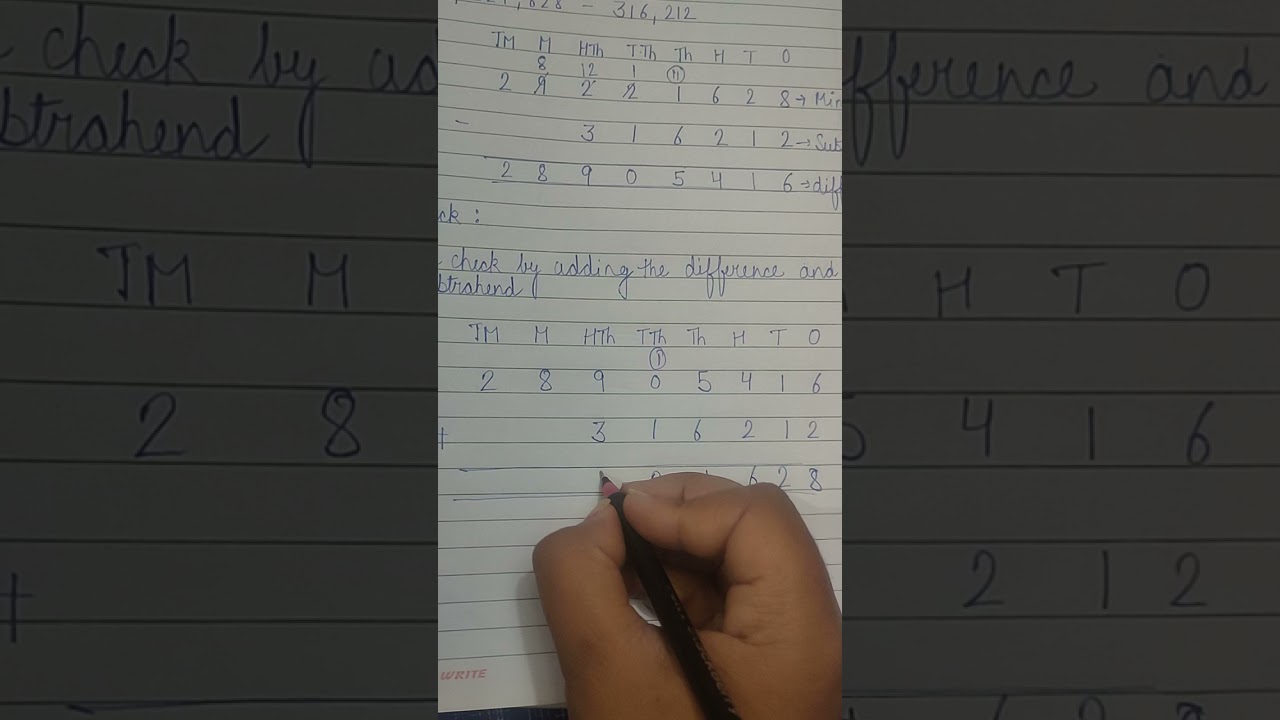 628 - 316,212
TM M HTh TTh Th H T O
8 12 1 11
2 9 2 2 1 6 2 8 →
- 3 1 6 2 1 2 →
2 8 9 0 5 4 1 6 →
check by adding the difference and
TM M HTh TTh Th H T O
1
2 8 9 0 5 4 1 6
+ 3 1 6 2 1 2
6 2 8
WRITE